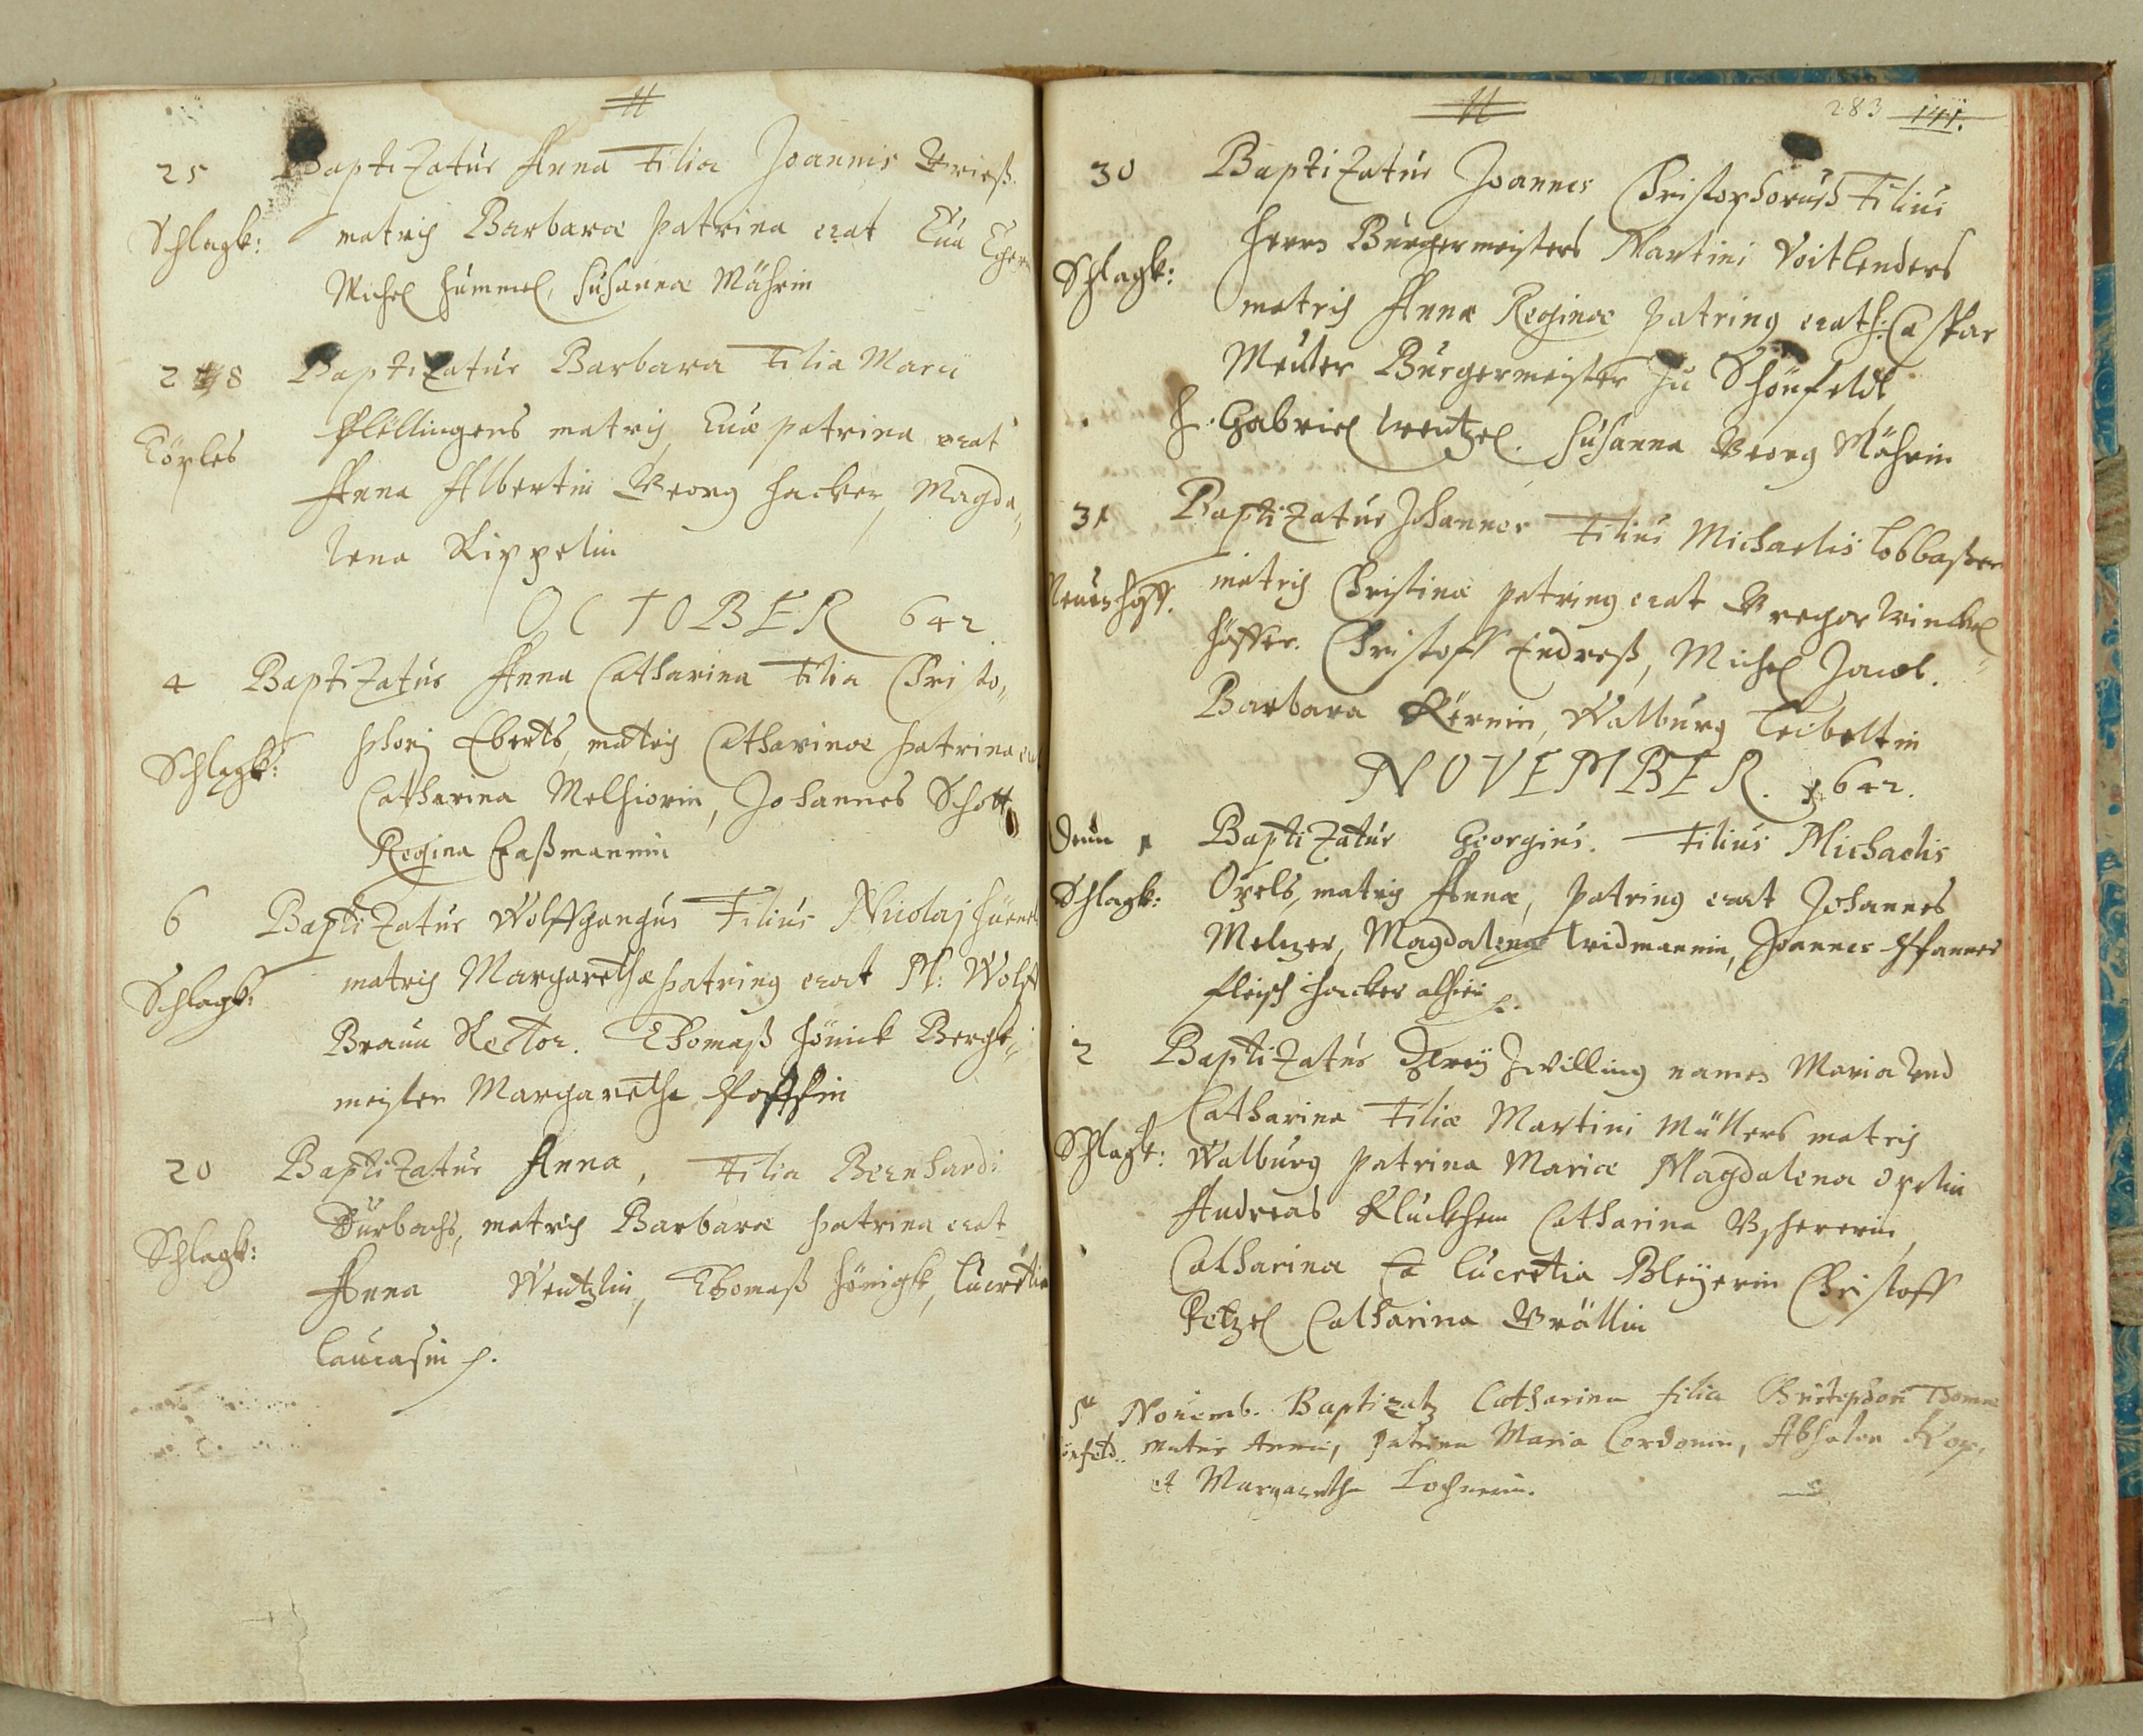 25 Baptizatur Anna Filia Joannis Grieß
Schlagk: matris Barbaræ patrina erat Eua
Michel Hummel, Susanna Mährin
28 Baptizatur Barbara Filia Marci
matris Euæ patrina erat
Anna Albertin Georg Hacker, Magda„
lena Rippelin
OCTOBER 642.
4 Baptizatur Anna Catharina Filia Christo„
Schlagk: phori Eberts, matris Catharinæ patrina
Catharina Melhiorin, Johannes Schott
Regina Haßmannin
6 Baptizatur Wolffgangus Filius Nicolaj
Schlagk: matris Margarethæ patrinus erat M: Wolff
Braun Rector. Thomaß Hönick Bergk„
meister Margaretha
20 Baptizatur Anna, Filia Bernhardi
Schlagk: Dürbachs, matris Barbaræ patrina erat
Anna Wentzlin, Thomaß Hönigk, Lucretia
283 141.
30 Baptizatur Joannes Christophoruß Filius
Herrn Burgermeisters Martini Voitlenders
Schlagk: matris Annæ Reginæ patrinus erat H: Caspar
Meuter Burgermeister zu Schönfeldt
H. Gabriel Wentzel. Susanna Georg Mährin
31 Baptizatur Johannes Filius Michaelis
matris Christinæ patrinus erat Gregor Winckel„
höffer. Christoff Endreß, Michel Jacob.
Barbara Körnin, Walburg
NOVEMBER. 1642.
1 Baptizatur Georgius. Filius Michaelis
Schlagk: Opels, matris Annæ, patrinus erat Johannes
Meltzer, Magdalena Widmannin, Joannes Pfanner
fleischhacker alhier
2 Baptizatur Zwey Zwilling namen Maria Vnd
Catharina Filiæ Martini Müllers matris
Schlagk: Walburg patrina Mariæ Magdalena Opelin
Andreas Catharina
Catharinæ Lucretia Bleyerin Christoff
Petzel Catharina Gröllin
5 Nouemb. Baptizatus Catharina filia Christophori Thomæ
matris Annæ, patrina Maria Cordonin, Absolon
et Margaretha Lochnerin.